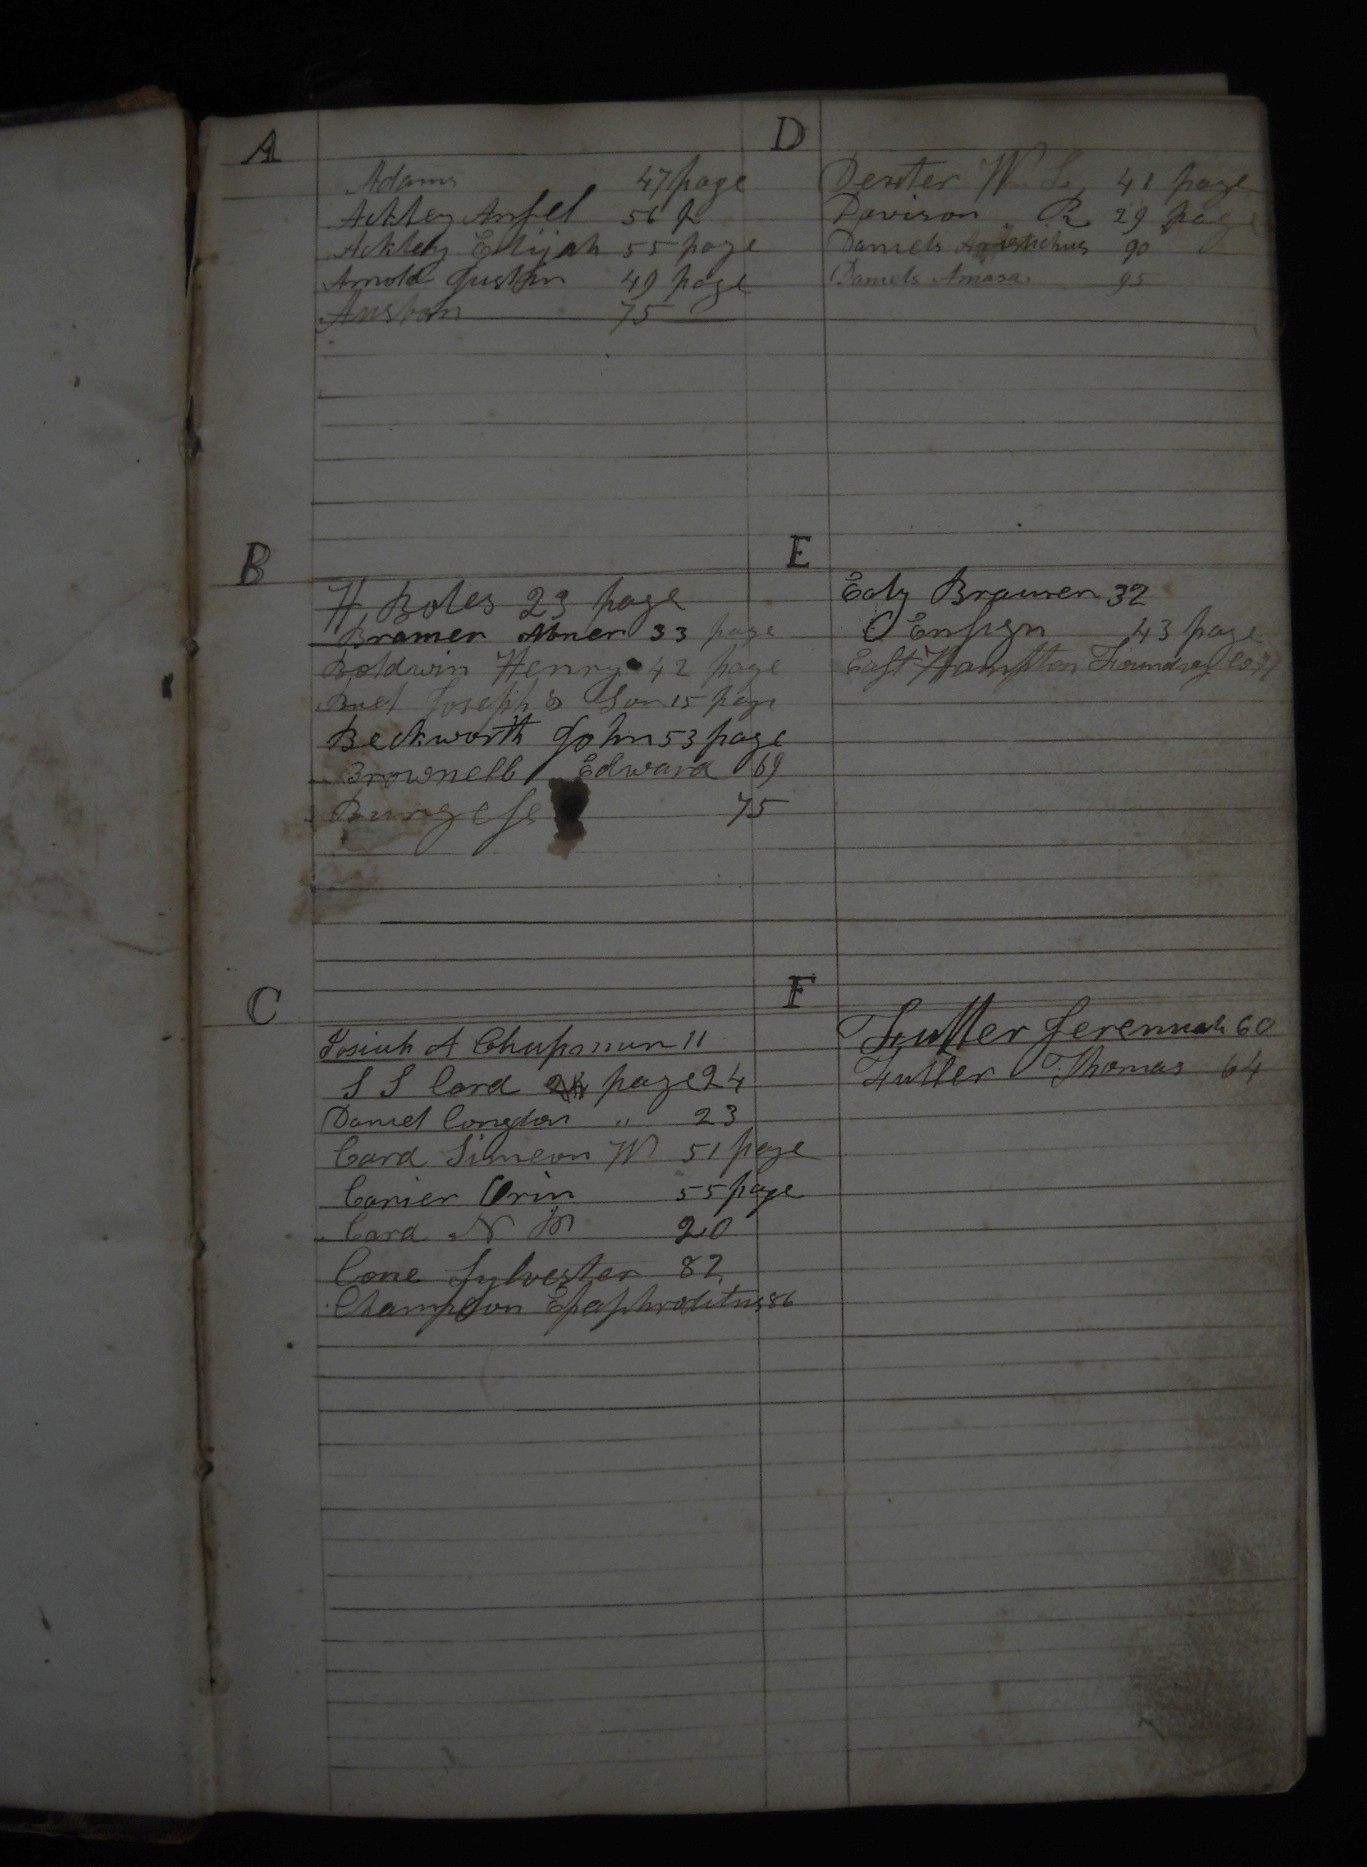 A
Adams 47 page
Ackley Ansel 56 p
Ackley Elijah 55 page
Arnold 49 page
75
B
H Boles 29 page
Bramer Abner 33 page
Boldwin Henry 42 page
Buel Joseph & Son 15 page
Beckworth John 53 page
Brownell Edward 69
Burgess 75
C
Josiah A Chapman 11
S S Card page 24
Daniel Congdon " 23
Card Simeon W 51 page
Carier Orin 55 page
Card N 20
Cone Sylvester 82
Champion Epaphroditus 86
D
Dexter W L 41 page
Davison R 29 page
Daniels 90
Daniels Amasa 95
E
Edy 32
C Ensign 43 page
East Hampton Foundry Co 77
F
Fuller Jeremiah 60
Fuller Thomas 64